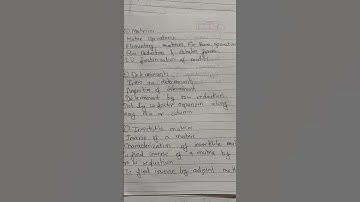 1) Matrices
Matrix operations
Elementary matrices, Row operations
Row Reduction & echelon forms
LU factorization of matrix
2) Determinants
Intro to determinants
Properties of determinants
Determinant by row reduction
Det by cofactor expansion along
any Row or column
3) Invertible matrices
Inverse of a matrix
Characterization of invertible
find inverse of a matrix by
reduction
find inverse by adjoint